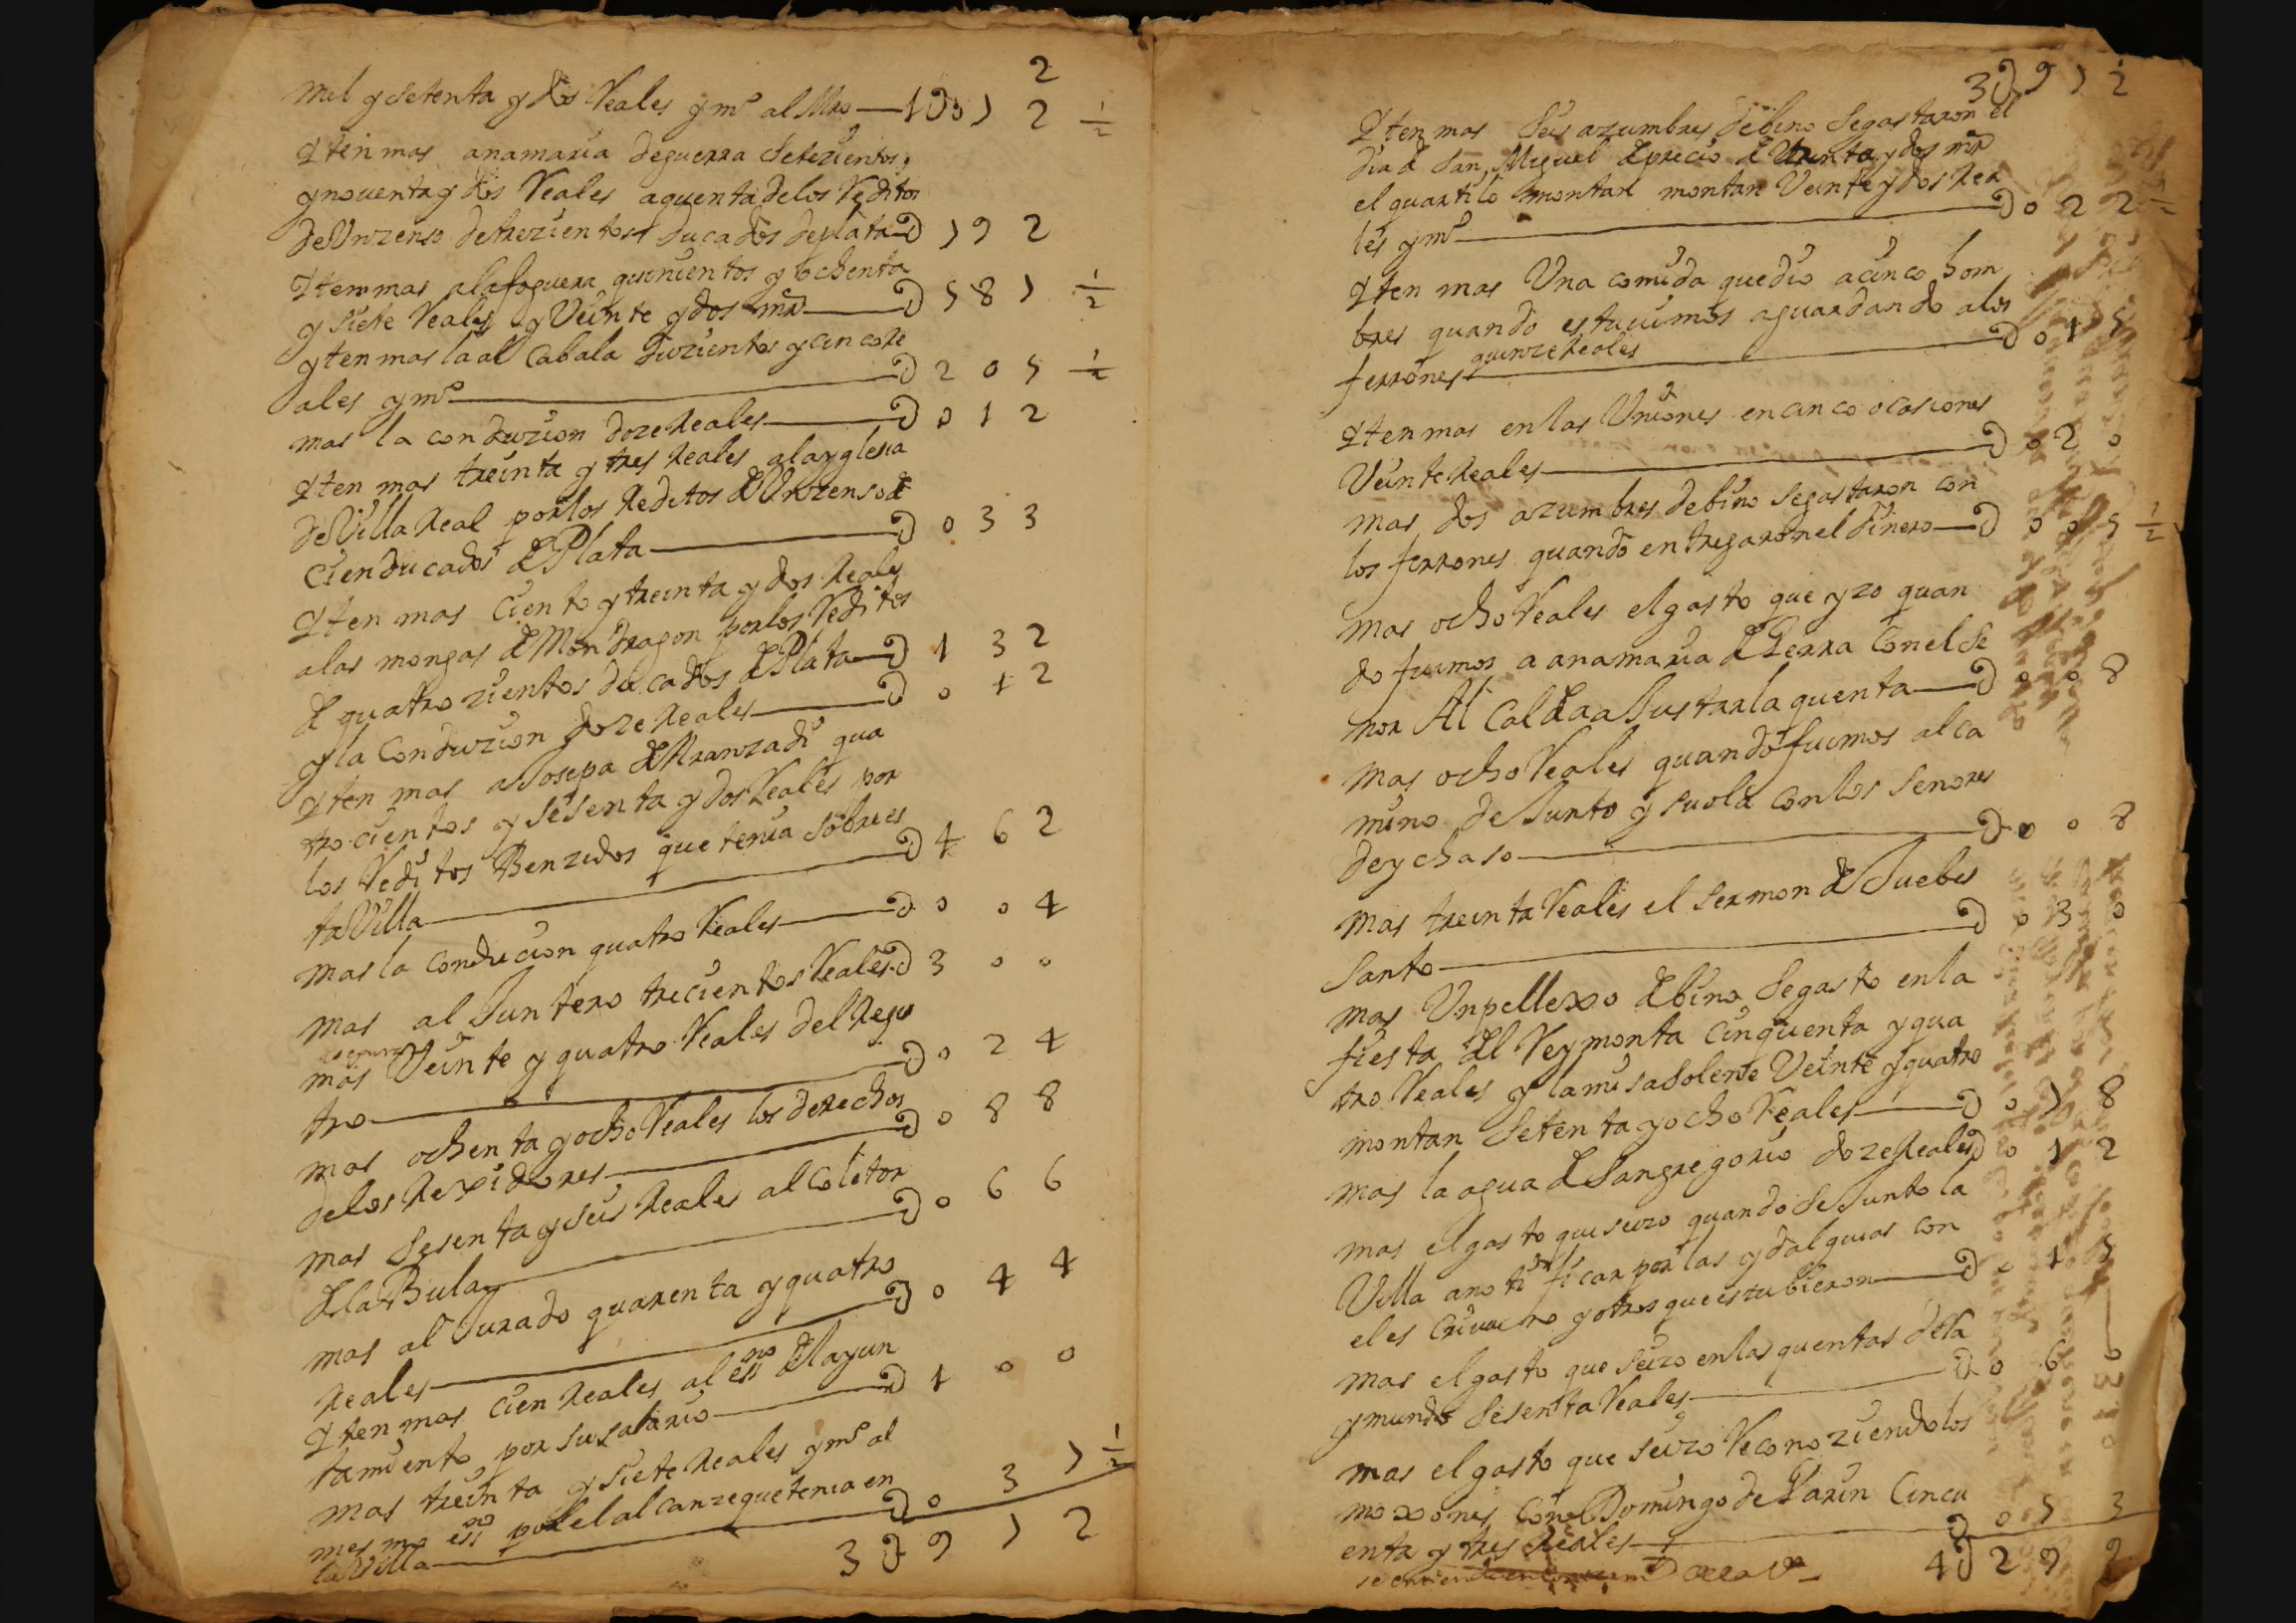 2
mil y setenta y dos Reales y mº al Mro — 1U07 2 ½
Yten mas anamaria deguerra Setezientos y
ynouenta y dos Reales aquenta delos Reditos
deUnzenso detrezientos ducados deplata U 7 9 2
Yten mas alafoguera quinientos y ochenta
y siete Reales y Veinte y dos mrs — U 5 8 7 ½
yten mas la al Cabala duzientos y cin co Re
ales y mº — U 2 0 5 ½
mas la conduzion doze Reales — U 0 1 2
Yten mas treinta y tres Reales alayglesia
deVilla Real porlos Reditos de Unzenso de
cien ducados de Plata — U 0 3 3
Yten mas Ciento y treinta y dos Reales
alas monjas de Mondragon porlos Reditos
de quatrozientos ducados de Plata — U 1 3 2
y la Conduzion doze Reales — U 0 1 2
Yten mas aJosepa de Aranzadi qua
tro cientos y sesenta y dos Reales por
los Reditos Benzidos que tenia sobre es
ta Villa — U 4 6 2
mas la conducion quatro Reales — U 0 0 4
mas al Juntero trecientos Reales U 3 0 0
mas Veinte y quatro Reales del Regis
tro — U 0 2 4
mas ochenta yocho Reales los derechos
delos Rexidores — U 0 8 8
mas Sesenta y seis Reales al Coletor
de la Bula — U 0 6 6
mas al Jurado quarenta y quatro
Reales — U 0 4 4
Yten mas cien Reales al essno del ayun
tamiento por su salario — U 1 0 0
mas treinta y siete Reales y mº al
mesmo essno por el alcanze que tenia en
la Villa — U 0 3 7 ½
3U 9 7 2
3U9 7 2
Yten mas Seis azumbres debino Segastaron el
dia de San Miguel aprecio de treinta y dos mrs
el quartilo montan montan Veinte y dos Rea
les y mº — U 0 2 2 ½
Yten mas Una comida quedio acinco hom
bres quando estuuimos aguardando alos
ferrones quinze Reales — U 0 1 5
Yten mas enlas Uniones en cinco ocasiones
Veinte Reales — U 0 2 0
mas dos azumbres debino segastaron con
los ferrones quando entregaron el dinero — U 0 0 5 ½
mas ocho Reales el gasto que yzo quan
do fuimos a anamaria de Gerra Con el Se
nor Al Calde a Justar la quenta — U 0 0 8
mas ocho Reales quando fuimos al ca
mino de Junto y suola con los Senores
deychaso — U 0 0 8
mas treinta Reales el sermon de Juebes
Santo — U 0 3 0
mas Unpellexo de bino Segasto en la
fiesta del Rey monta Cinquenta y qua
tro Reales y la misa Solene Veinte y quatro
montan Setenta yocho Reales — U 0 7 8
mas la agua de Sangregorio doze Reales U 0 1 2
mas el gasto que seizo quando se Junto la
Villa a notificar por las ydalguias con
el es Criuano y otros que estubieron — U 0 1 5
mas el gasto que seizo en las quentas de la
ymundo Sesenta Reales — U 0 6 0
mas el gasto que seizo Reconoziendo los
moxones Con Domingo de Larin Cinqu
enta y tres Reales — U 0 5 3
4U 2 9 2